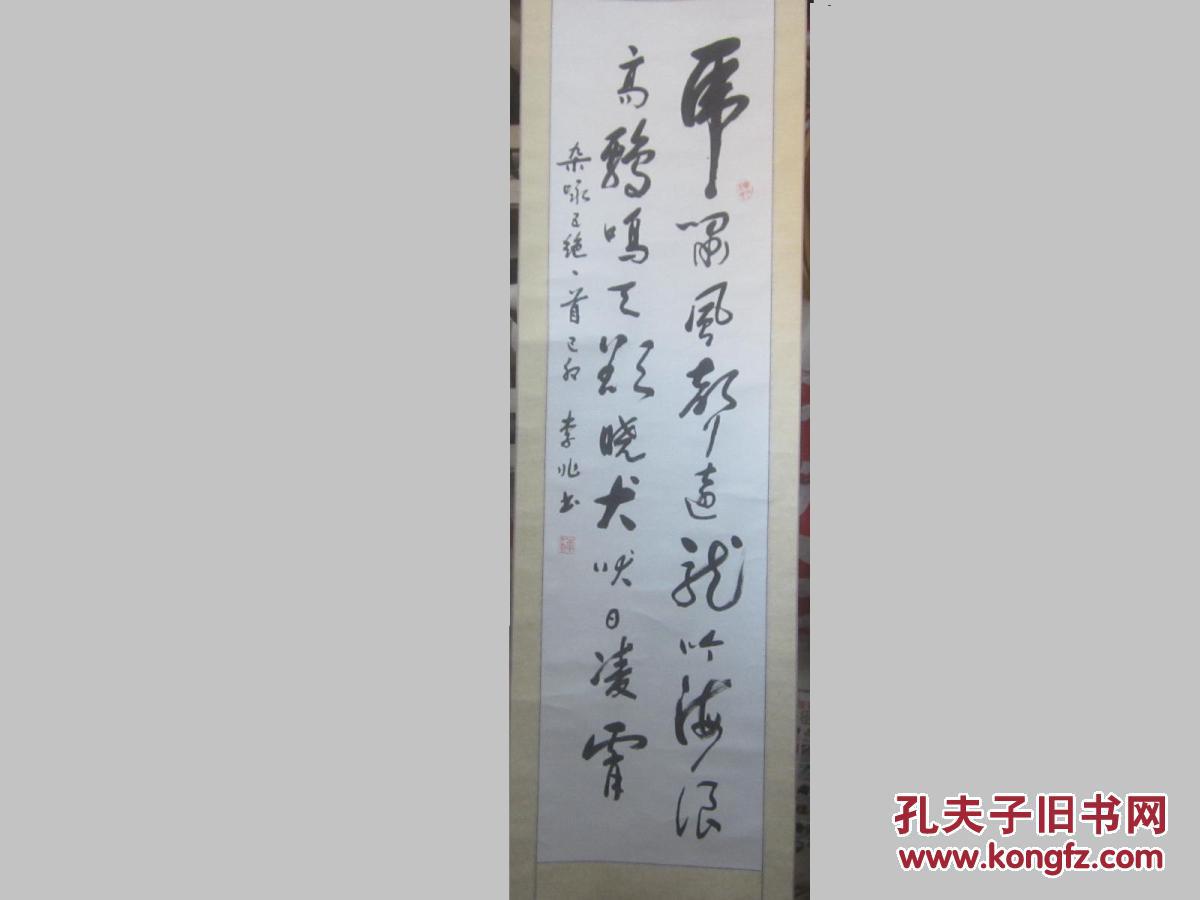 虎啸風聲遠龍吟海浪
高鷄鳴天欲曉犬吠日凌霄
杂咏五絕一首己卯 李兆书
孔夫子旧书网
www.kongfz.com